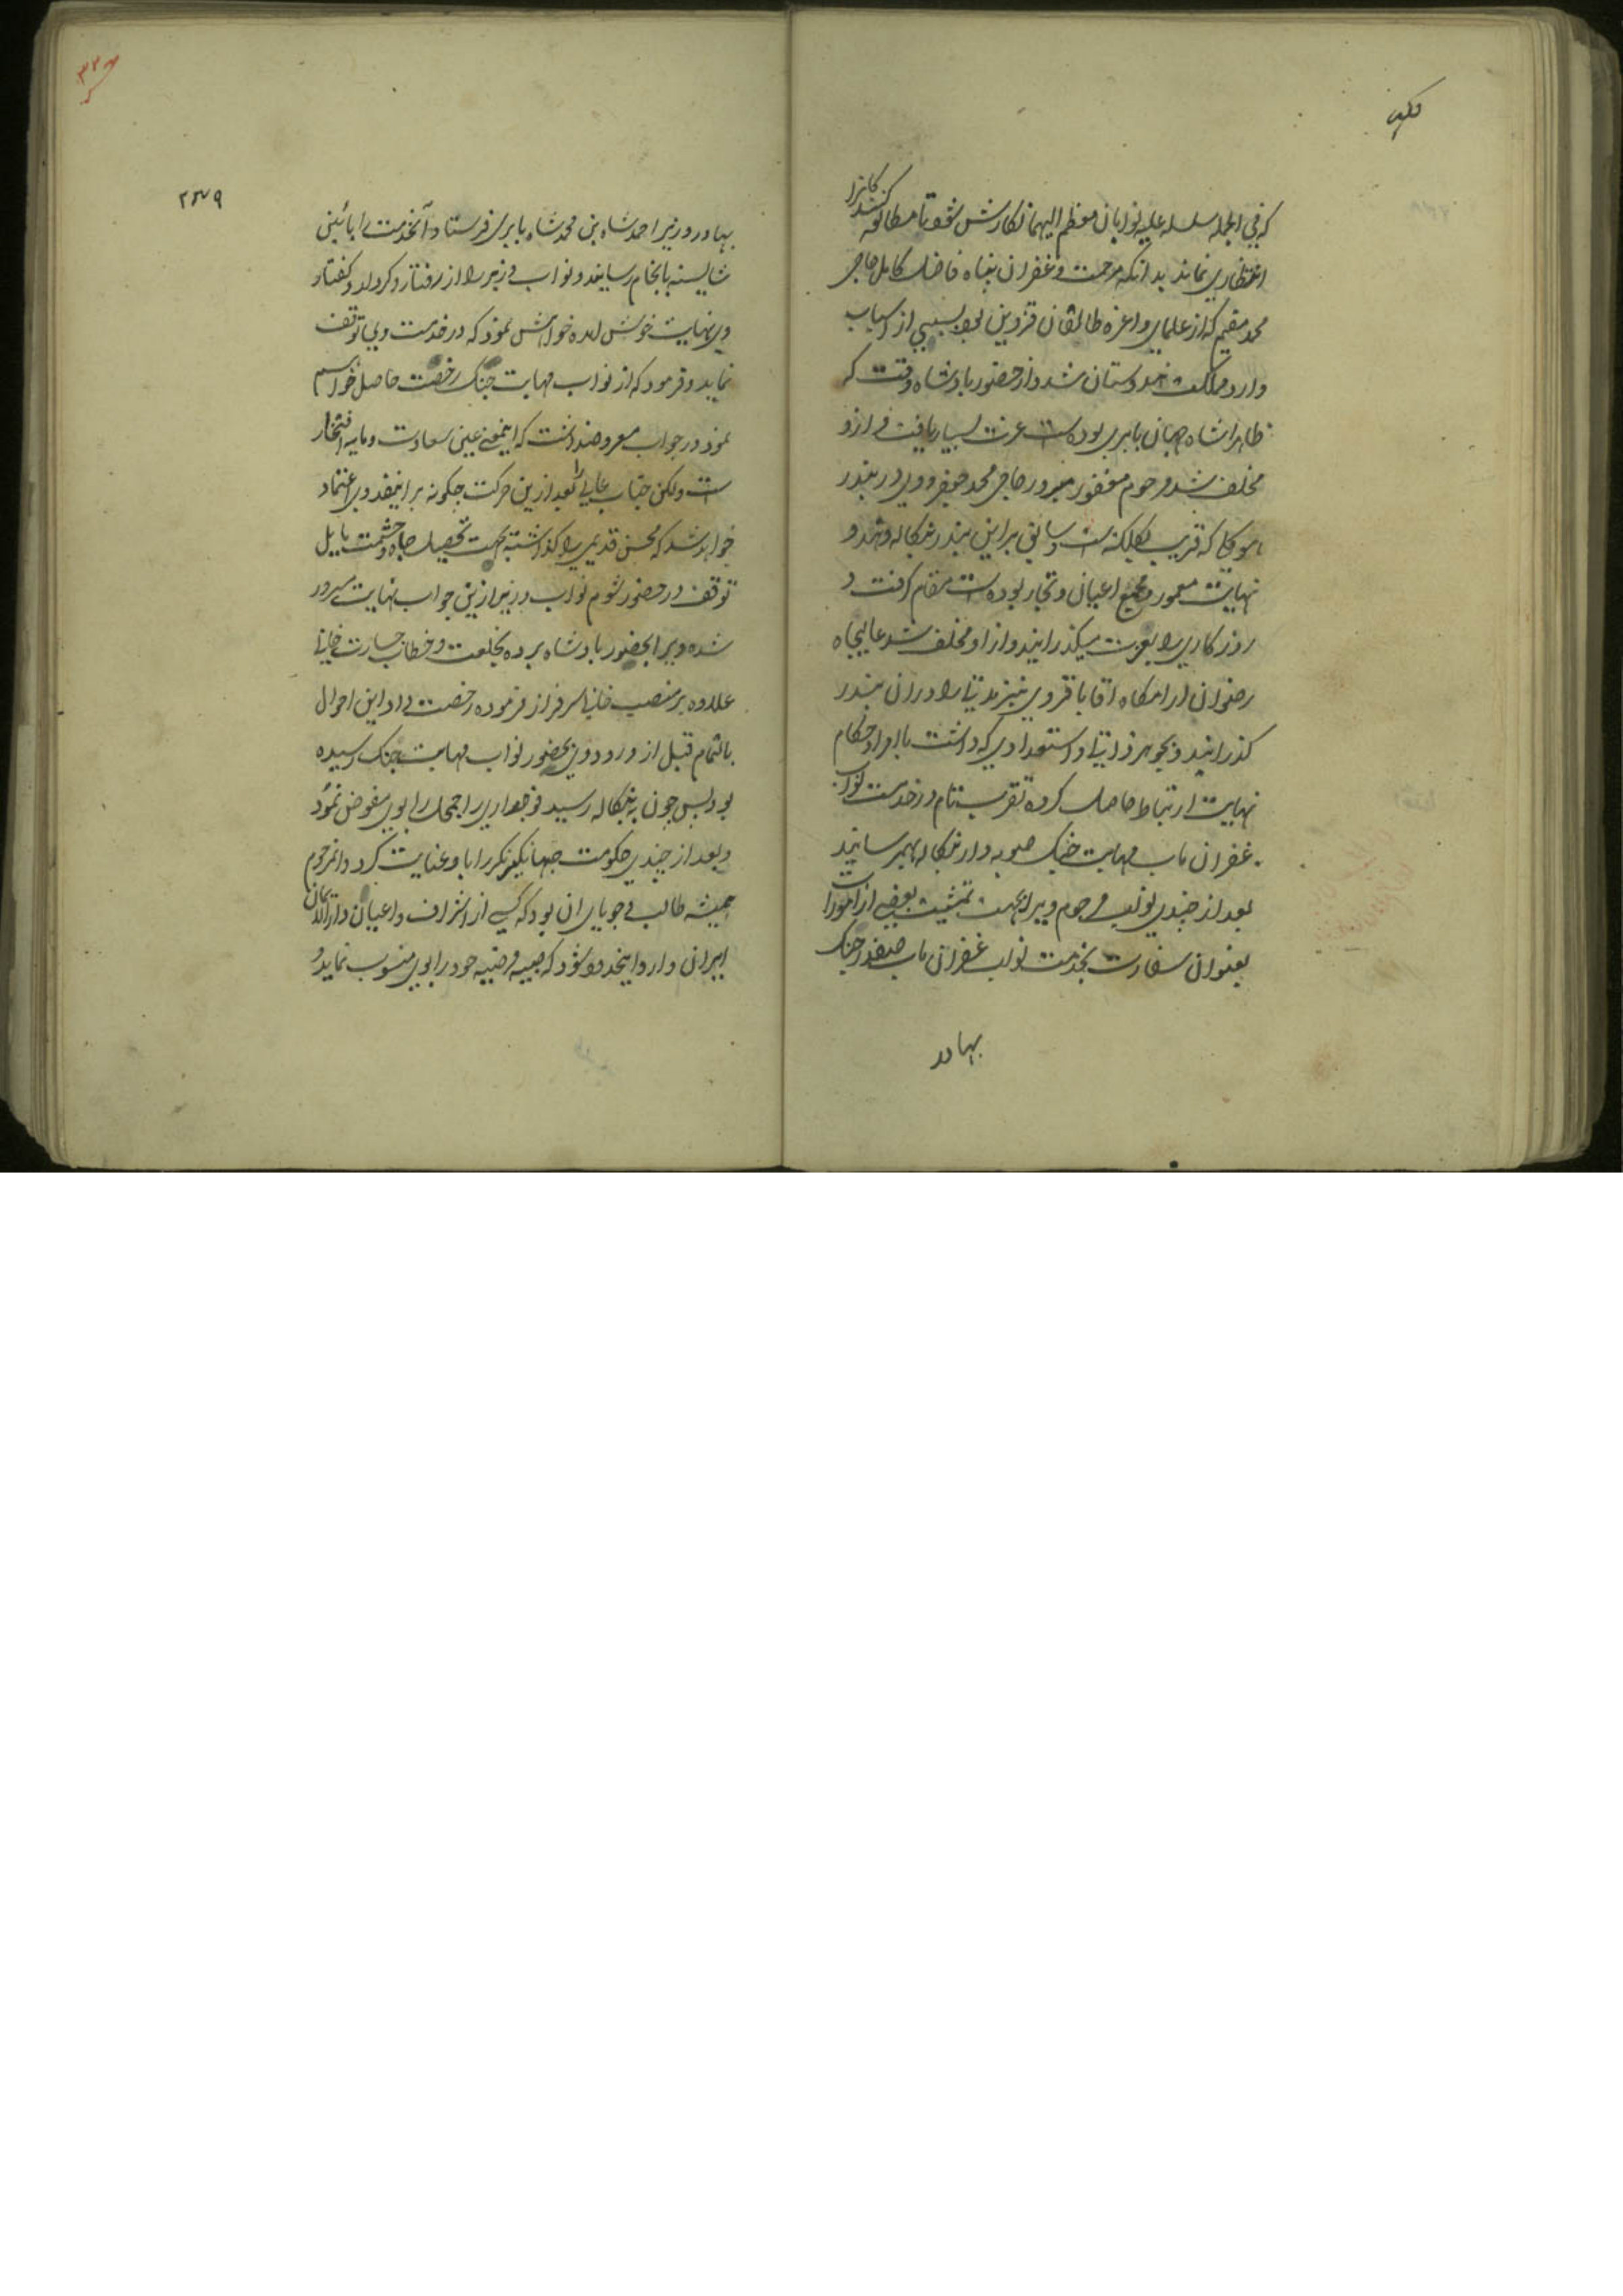 که فی الجمله سلسله علیه نوابان معظم الیهما نکارش شود تا مطالعه کنندکانرا
انتظاری نماند بدانکه مرحمت و غفران پناه فاضل کامل حاجی
محمد مقیم که از علمای و اعزه طالقان قزوین بود بسببی از اسباب
وارد مملکت هندوستان شد و از حضور پادشاه وقت که
ظاهرا شاه جهان بابری بوده است عزت بسیار یافت و ازو
مخلف شد مرحوم مغفور مبرور حاجی محمد جعفر و وی در بندر
که قریب بکلکته است و سابق بر این بندر بنکاله و
نهایت معمور و مجمع اعیان و تجار بوده است مقام کرفت و
روزکاری را بعزت میکذرانید و از او مخلف شد عالیجاه
رضوان ارامکاه اقا باقر وی نیز مدتی را در ان بندر
کذرانید و بجوهر ذاتی و استعدادی که داشت با امرا و حکام
نهایت ارتباط حاصل کرده تقرب تام در خدمت نواب
غفران ماب مهابت جنک صوبه دار بنکاله بهمرسانید
بعد از چندی نواب مرحوم ویرا بجهت تمشیت بعضی از امورات
بعنوان سفارت بخدمت نواب غفران ماب صفدر جنک
بهادر
۲۳۹
بهادر وزیر احمد شاه بن محمد شاه بابری فرستاد آنخدمت را بائینی
شایسته بانجام رسانید و نواب وزیر را از رفتار و کردار و کفتار
وی نهایت خوش امده خواهش نمود که در خدمت وی توقف
نماید و فرمود که از نواب مهابت جنک رخصت حاصل خواهم
نمود در جواب معروضداشت که اینمعنی عین سعادت و مایه افتخار
است ولکن جناب عالی را بعد ازین حرکت چکونه بر اینفدوی اعتماد
خواهد شد که محسن قدیمی را کذاشته بجهت تحصیل جاه و حشمت مایل
توقف در حضور شوم نواب وزیر ازین جواب نهایت مسرور
شده ویرا بحضور پادشاه برده بخلعت و خطاب جسارت خانی
علاوه بر منصب خانی سرفراز فرموده رخصت داد این احوال
بالتمام قبل از ورود وی بحضور نواب مهابت جنک رسیده
بود پس چون به بنکاله رسید فوجداری راجمحل را بوی مفوض نمود
و بعد از چندی حکومت جهانکیرنکر را باو عنایت کرد و انمرحوم
همیشه طالب و جویای ان بود که کسی از اشراف و اعیان دارالامان
ایران وارد انحدود شود که صبیه مرضیه خود را بوی منسوب نماید و